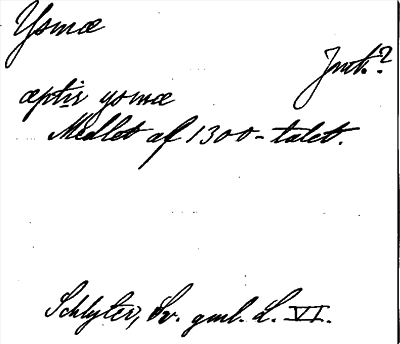 Ysmæ
Jmt.?
æptir ysmæ
Medlet af 1300-talet.
Schlyter, Sv. gml. L. VI.